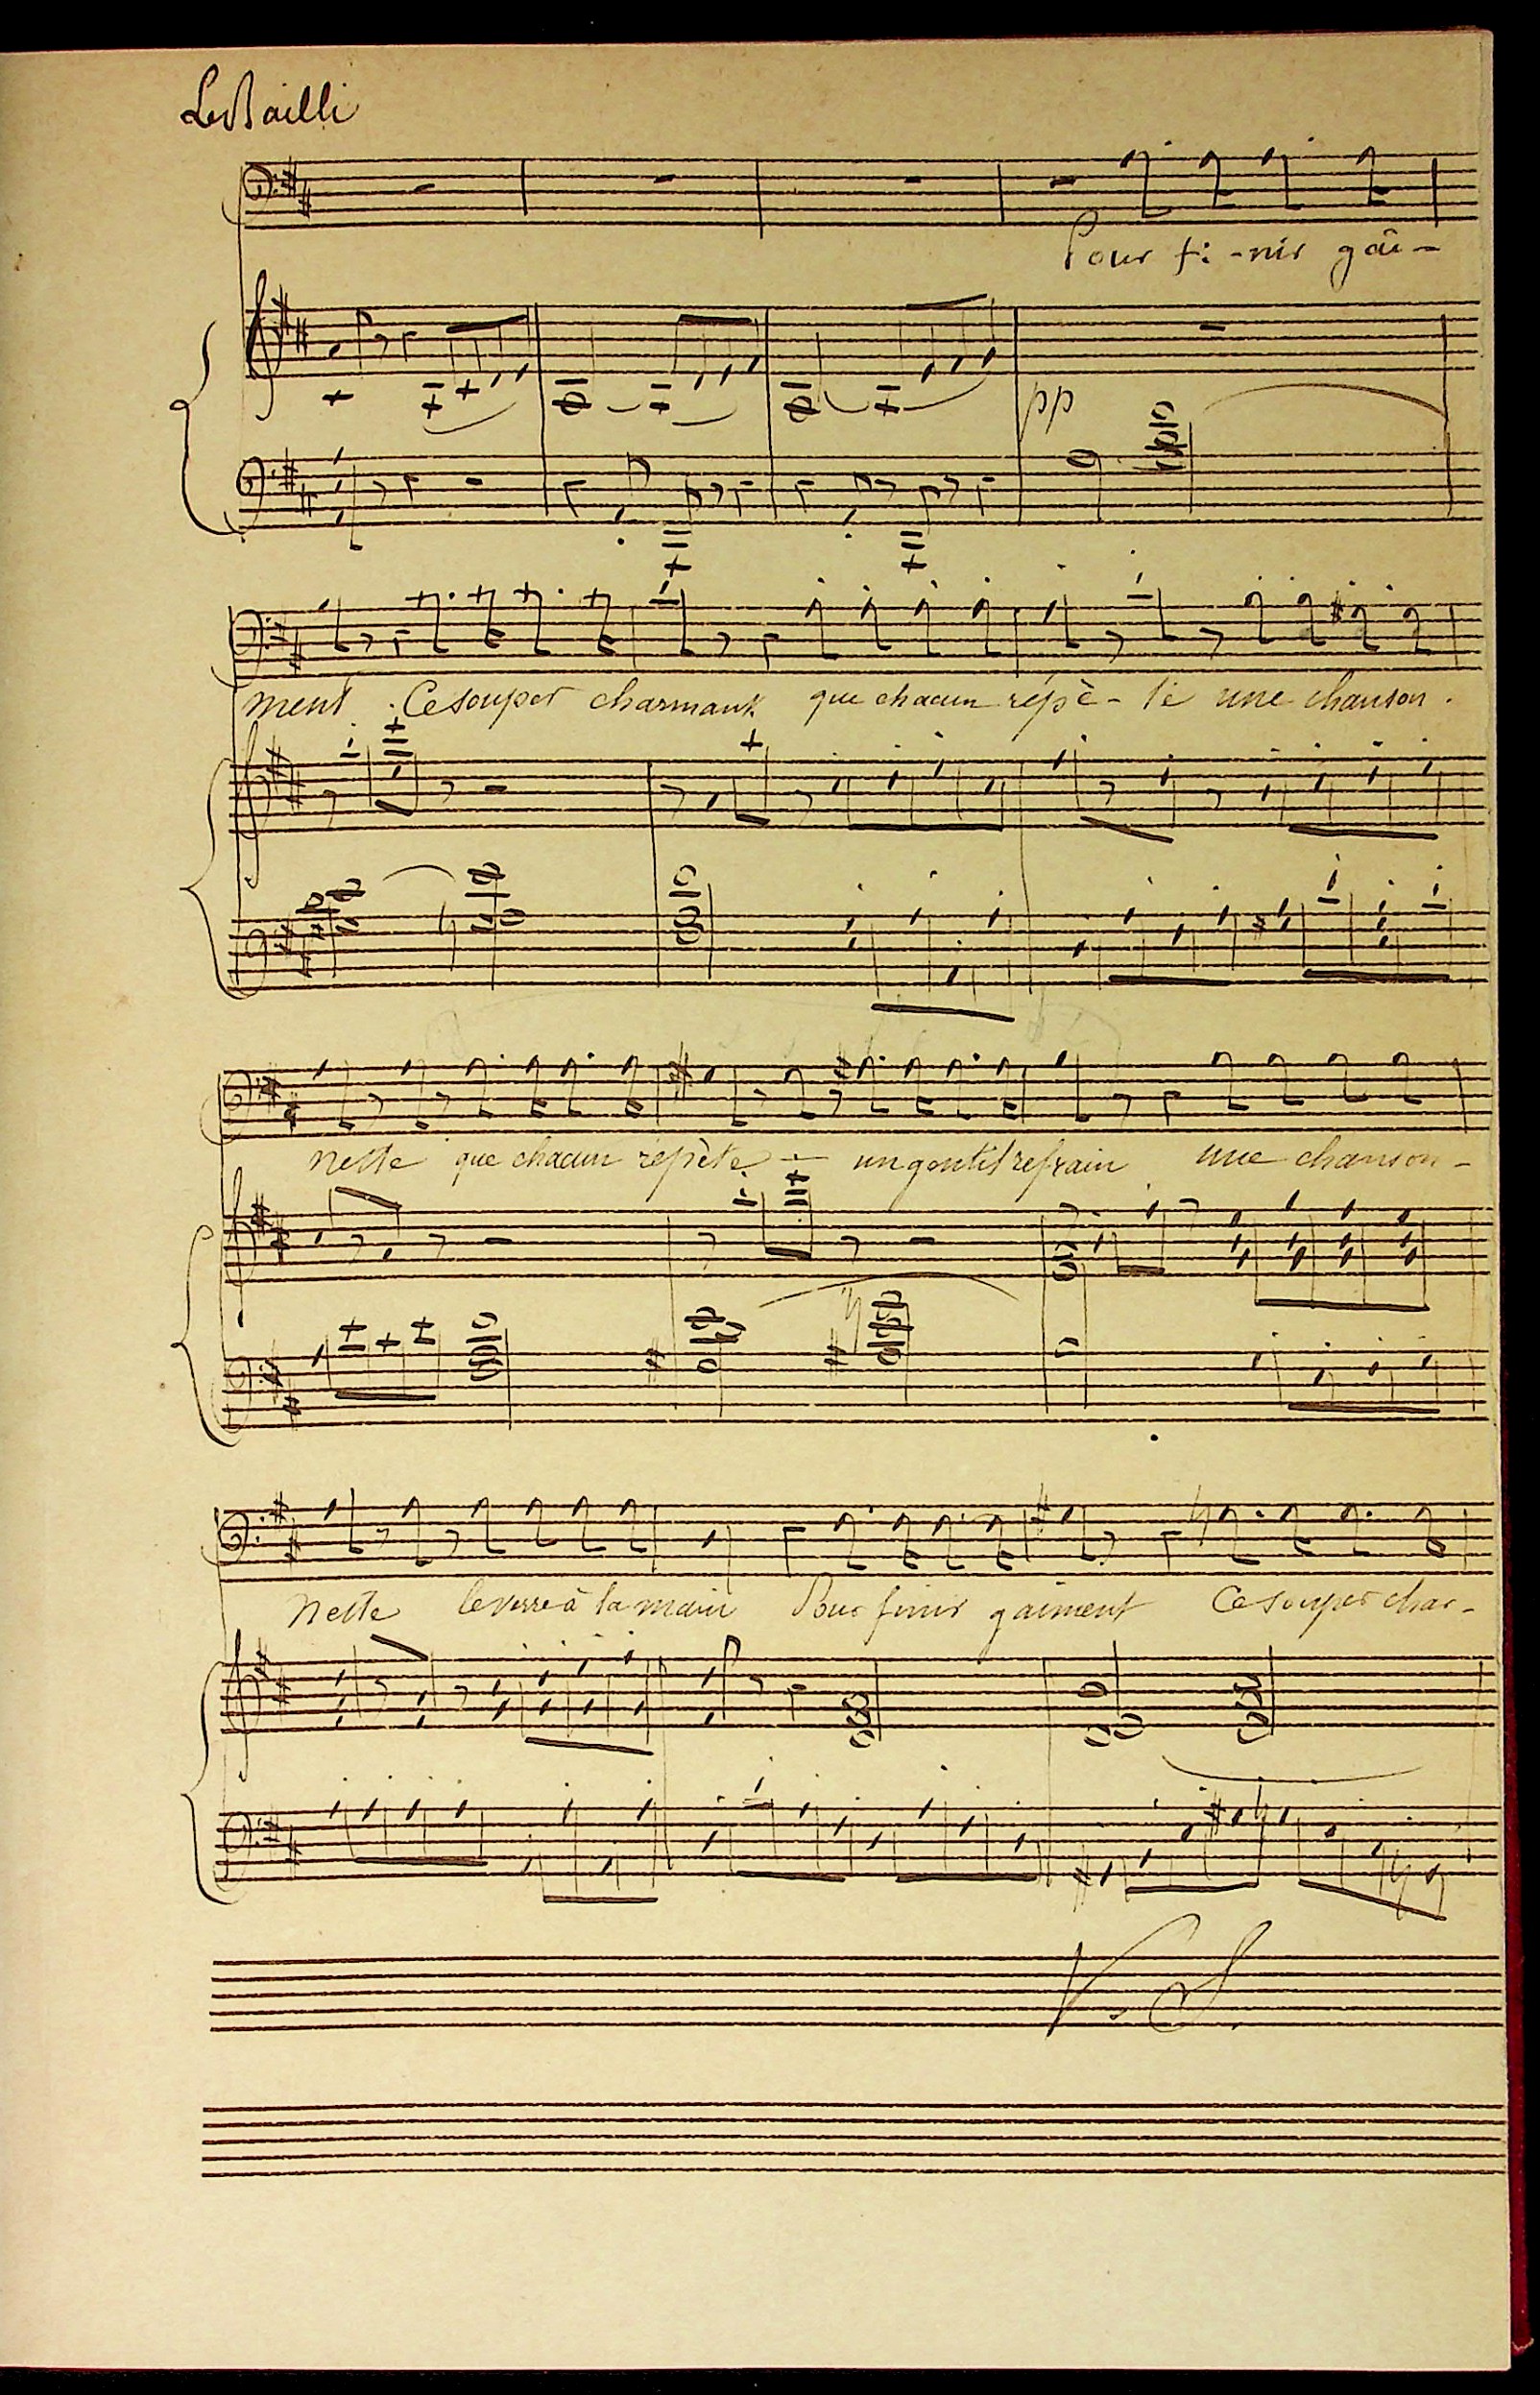 Le Bailli
Pour fi-nir gaî-
pp
ment. Ce souper charmant que chacun répè-te une chanson.
nette que chacun répète - un gentil refrain une chanson-
nette le verre à la main Pour finir gaiment Ce souper char-
V. S.